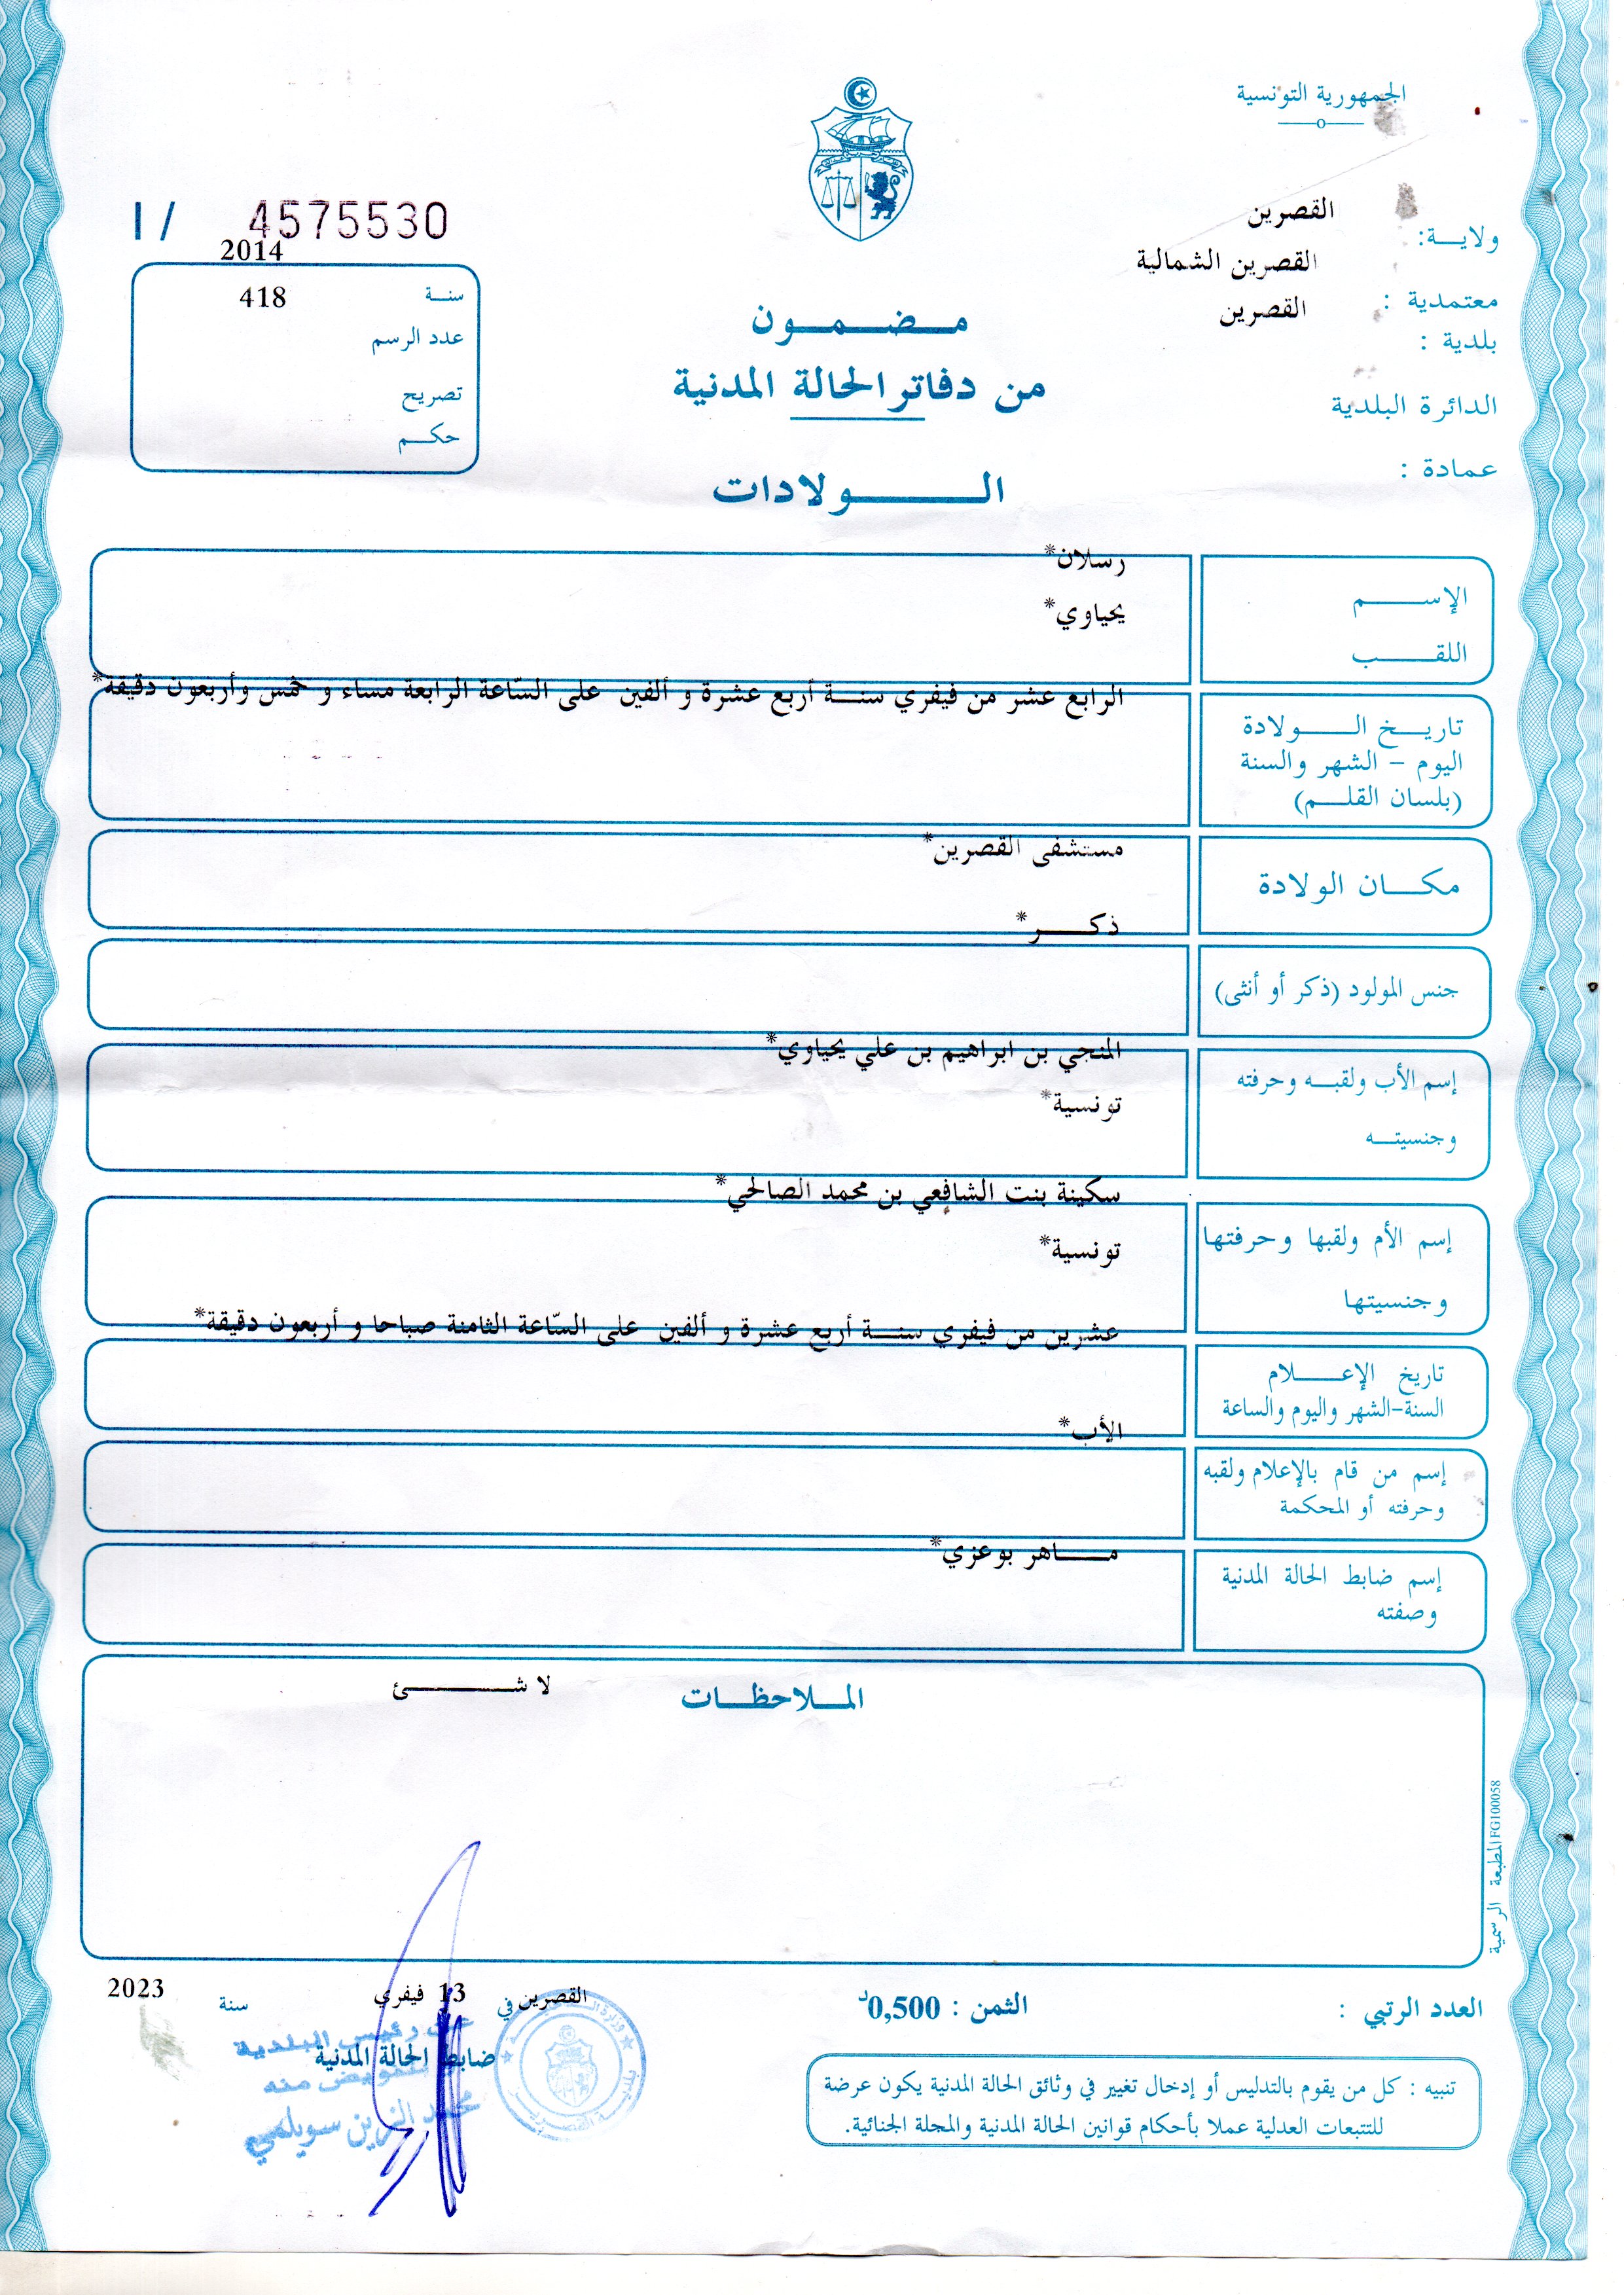 الجمهورية التونسية
ولاية: القصرين
معتمدية : القصرين الشمالية
بلدية : القصرين
الدائرة البلدية
عمادة :
I / 4575530
2014
سنة 418
عدد الرسم
تصريح
حكم
مضمون
من دفاتر الحالة المدنية
الولادات
الإسم
رسلان*
اللقب
يحياوي*
تاريخ الولادة
اليوم - الشهر والسنة
(بلسان القلم)
الرابع عشر من فيفري سنة أربع عشرة و ألفين على السّاعة الرابعة مساء و خمس وأربعون دقيقة*
مكان الولادة
مستشفى القصرين*
جنس المولود (ذكر أو أنثى)
ذكر*
إسم الأب ولقبه وحرفته
وجنسيته
المنجي بن ابراهيم بن علي يحياوي*
تونسية*
إسم الأم ولقبها وحرفتها
وجنسيتها
سكينة بنت الشافعي بن محمد الصالحي*
تونسية*
تاريخ الإعلام
السنة-الشهر واليوم والساعة
عشرين من فيفري سنة أربع عشرة و ألفين على السّاعة الثامنة صباحا و أربعون دقيقة*
إسم من قام بالإعلام ولقبه
وحرفته أو المحكمة
الأب*
إسم ضابط الحالة المدنية
وصفته
ماهر بوعزي*
الملاحظات
لا شئ
المطبعة الرسمية FG100058
العدد الرتبي :
الثمن : 0,500د
القصرين في 13 فيفري سنة 2023
ضابط الحالة المدنية
عن رئيس البلدية
بتفويض منه
محمد الزين سويلمي
تنبيه : كل من يقوم بالتدليس أو إدخال تغيير في وثائق الحالة المدنية يكون عرضة
للتتبعات العدلية عملا بأحكام قوانين الحالة المدنية والمجلة الجنائية.